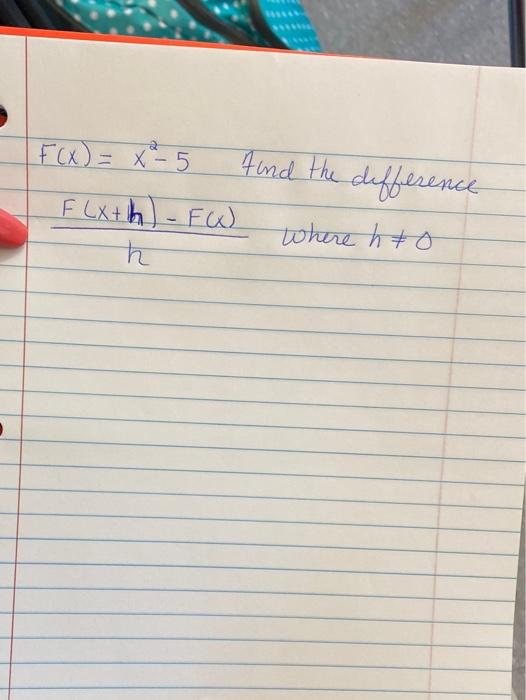 F(x) = x² - 5 find the difference
F(x+h) - F(x)
h
where h ≠ 0